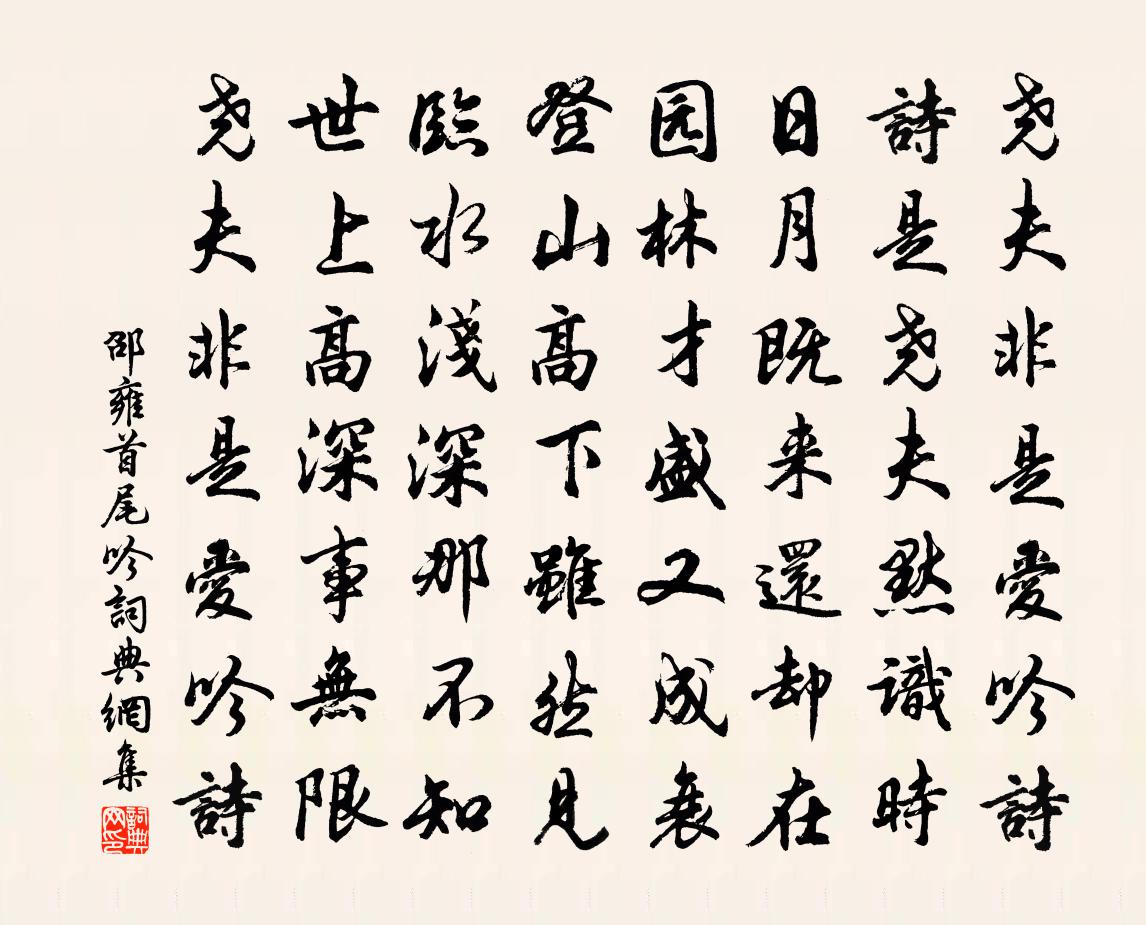 尧夫非是愛吟詩
詩是尧夫黙識時
日月既来還却在
园林才盛又成衰
登山高下雖然見
臨水淺深那不知
世上高深事無限
尧夫非是愛吟詩
邵雍首尾吟詞典網集
詞典網印